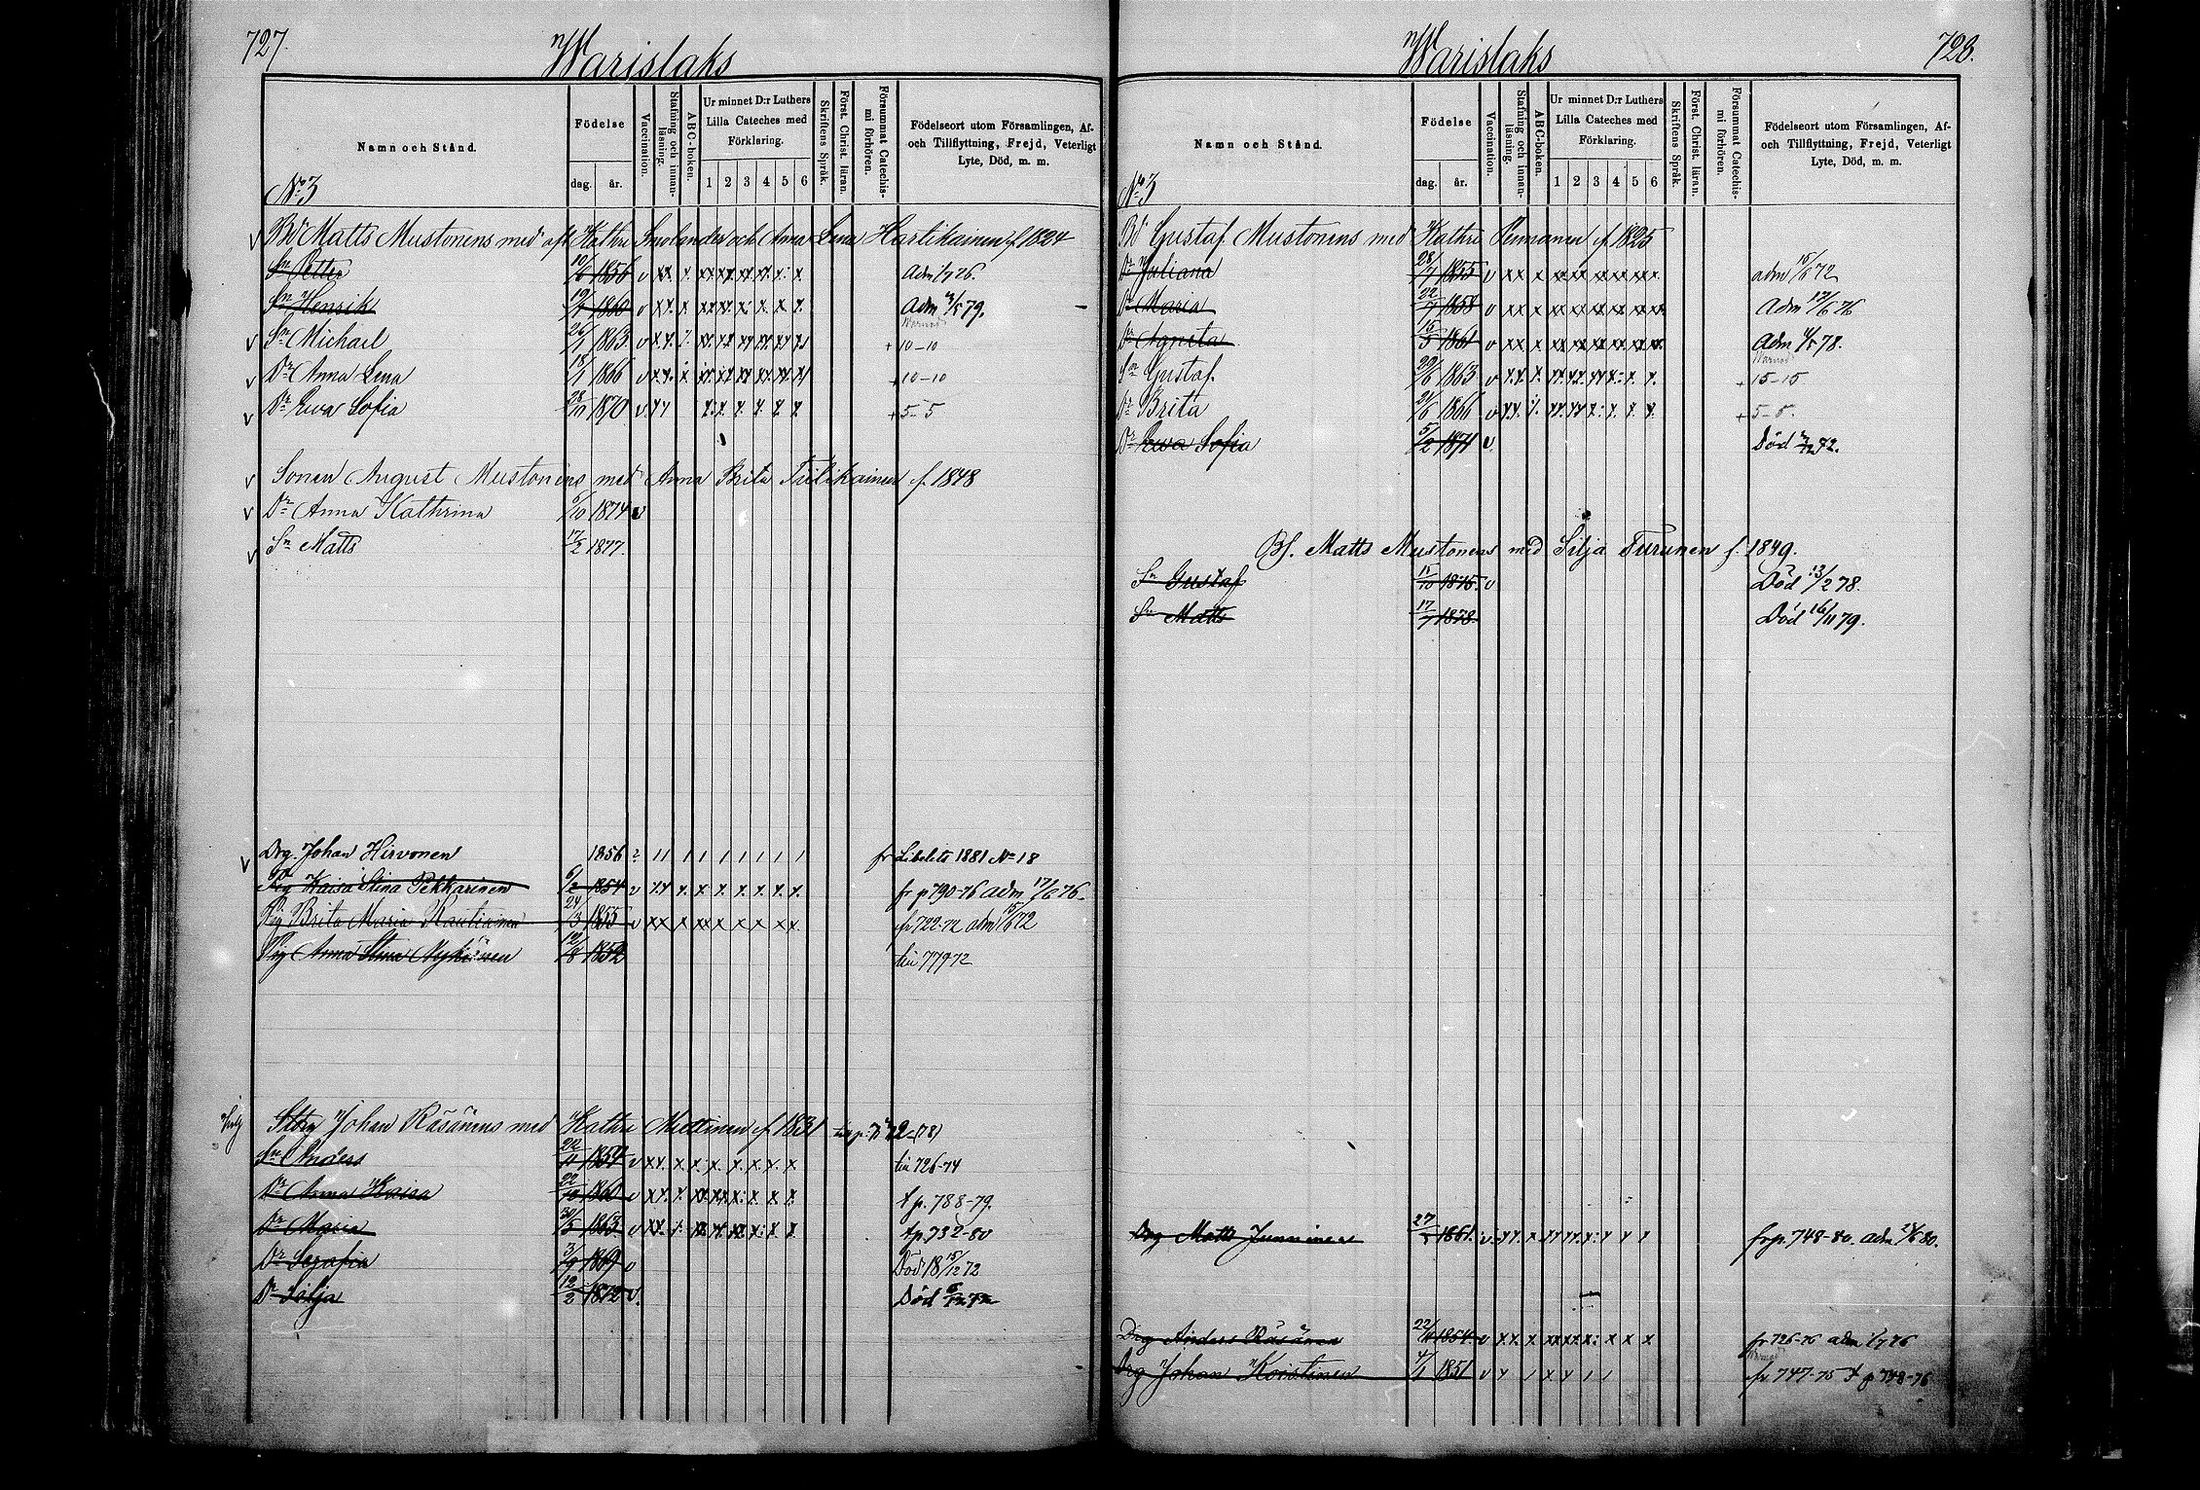 727.
Warislaks
Namn och Stånd.
Födelse
dag. år.
Vaccination.
Stafning och innan-läsning.
ABC-boken.
Ur minnet D:r Luthers
Lilla Cateches med
Förklaring.
1 2 3 4 5 6
Skriftens Språk.
Först. Christ. läran.
Försummat Catechis-mi förhören.
Födelseort utom Församlingen, Af-
och Tillflyttning, Frejd, Veterligt
Lyte, Död, m. m.
No 3
v Bd Matts Mustonens med aft Kathri Smolander och Anna Lena Hartikainen f. 1824
Sn Petter 10/6 1856 v xx x xx xx xx xx x: x Adm 1/7 76.
Sn Henrik 1860 v Adm 79.
v Sn Michael 26/1 1863 v + 10-10
v Dr Anna Lena 18/1 1866 v + 10-10
v Dr Ewa Sofia 28/10 1870 v + 5-5
v Sonen August Mustonens med Anna Brita Tiilikainen f. 1848
v Dr Anna Kathrina 6/10 1874 v
v Sn Matts 17/2 1877
v Drg. Johan Hirvonen 1856 fr Libelits 1881 No 18
Pig Kaisa Stina Pekkarinen 6/2 1854 v fr p 790-76 adm 17/6 76.
Pig Brita Maria Rautiainen 24/3 1855 v fr 722-72 adm 15/6 72
Pig Anna Stina Nykänen 12/8 1852 till 779 72
Johan Räsänens med Kathri Miettinen f. 1831
Sn Anders 22/11 1854 v till 726-74
Dr Anna Kaisa 22/10 1860 v t p. 788-79.
Dr Maria 30/5 1863 v t p. 732-80
Dr Serafia 3/9 1869 v Död 18 15/12 72
Dr Silja 12/2 1872 v. Död
728.
Warislaks
Namn och Stånd.
Födelse
dag. år.
Vaccination.
Stafning och innan-läsning.
ABC-boken.
Ur minnet D:r Luthers
Lilla Cateches med
Förklaring.
1 2 3 4 5 6
Skriftens Språk.
Först. Christ. läran.
Försummat Catechis-mi förhören.
Födelseort utom Församlingen, Af-
och Tillflyttning, Frejd, Veterligt
Lyte, Död, m. m.
No 3
Bd Gustaf Mustonens med Kathri Pennanen f. 1825
Dr Juliana 28/7 1855 v adm 15/6 72
Dr Maria 1858 v Adm 17/6 76
Dr Agneta 15/5 1861 v Adm 78.
Sn Gustaf 29/6 1863 v + 15-15
Dr Brita 21/6 1866 v + 5-5.
Dr Ewa Sofia 5/2 1871 v. Död 72.
Bs. Matts Mustonens med Silja Turunen f. 1849.
Sn Gustaf 15/10 1875 v Död 13/2 78.
Sn Matts 17/7 1878. Död 16/11 79.
Drg Matts Junninen 1861. v frp. 748-80. adm 80.
Drg Anders Räsänen 22/11 1854 v fr 726-76 adm 1/7 76
Drg Johan Koistinen 4/1 1851 v fr 747-75 t p 748-76